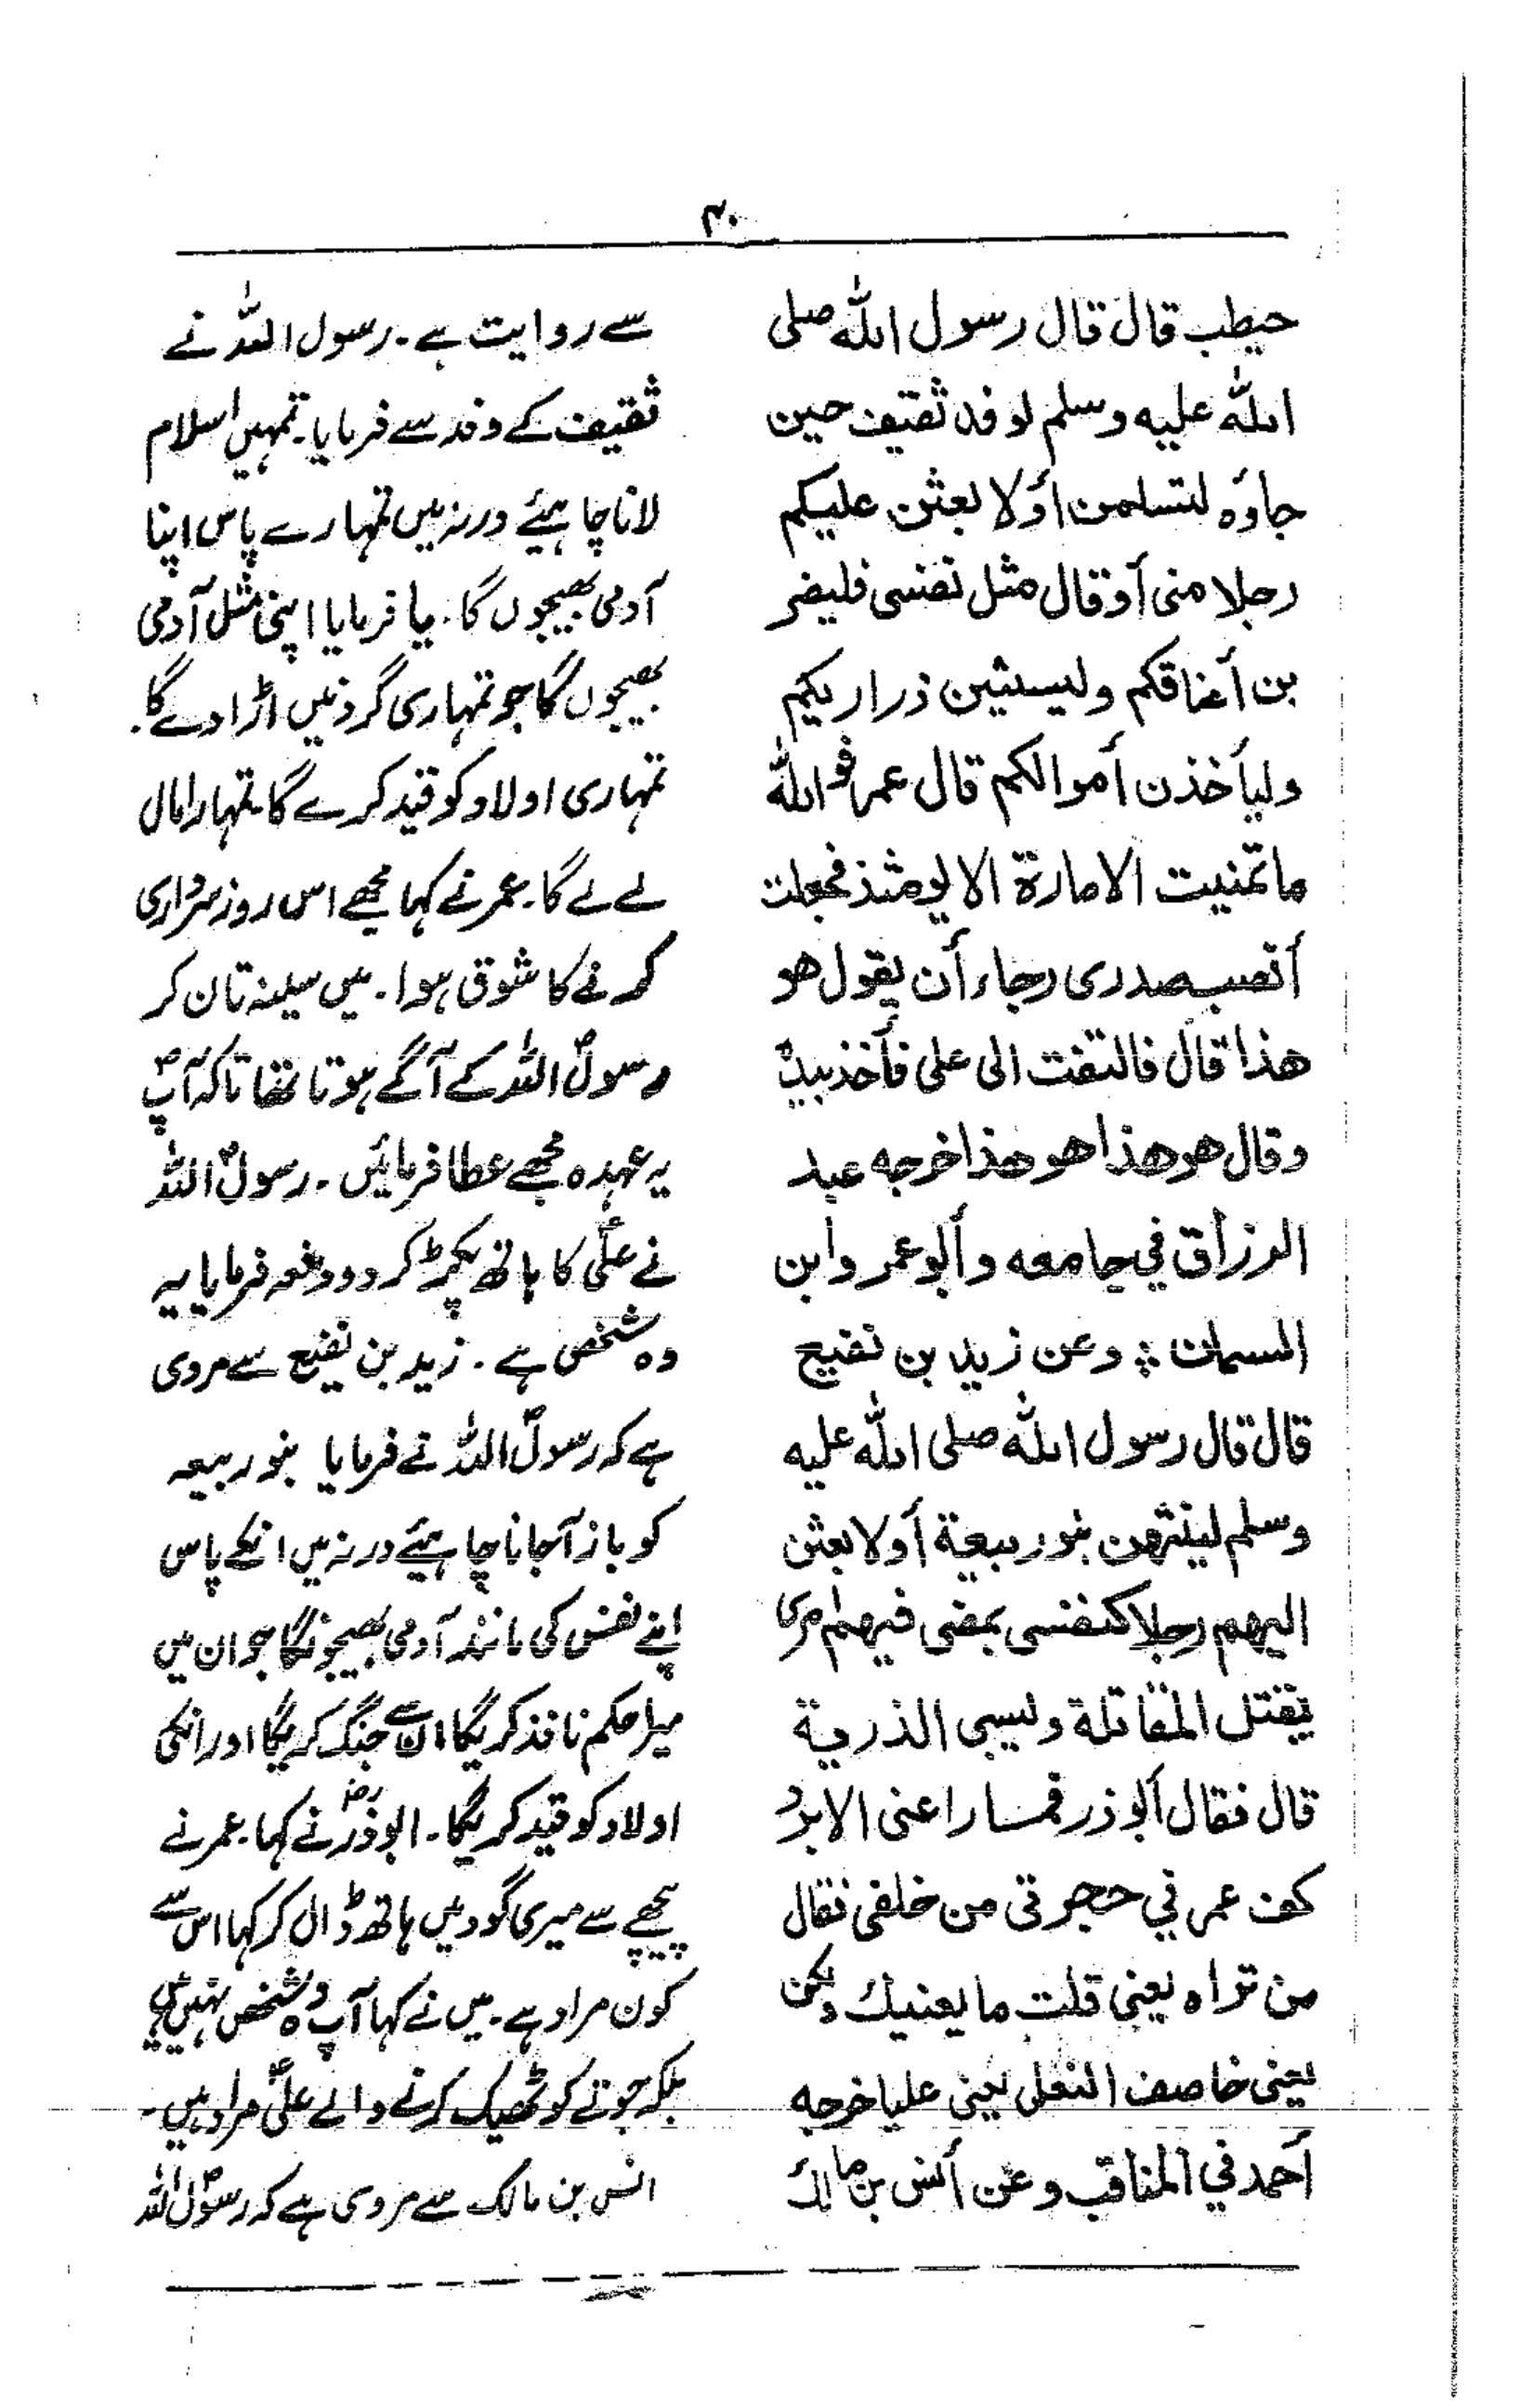 ۴۰
حيطب قال قال رسول الله صلى
الله عليه وسلم لوفد ثقيف حين
جاؤه لتسلمن أولا بعثن عليكم
رجلا منى أوقال مثل نفسى فليضر
بن أعناقكم وليسبين ذراريكم
وليأخذن أموالكم قال عمر فوالله
ما تمنيت الامارة الا يومئذ فجعلت
أنصب صدرى رجاء أن يقول هو
هذا قال فالتفت الى على فأخذ بيده
وقال هو هذا هو هذا اخرجه عبد
الرزاق في جامعه وأبو عمر وابن
السمان ؞ وعن زيد بن نفيع
قال قال رسول الله صلى الله عليه
وسلم لينتهن بنو ربيعة أولا بعثن
اليهم رجلا كنفسى يمضى فيهم امرى
يقتل المقاتلة ويسبى الذرية
قال فقال أبو ذر فما راعنى الا برد
كف عمر في حجرتى من خلفى فقال
من تراه يعنى قلت ما يعنيك ولكن
يعنى خاصف النعل يعنى عليا خرجه
أحمد في المناقب وعن أنس بن مالك
سے روایت ہے۔ رسول اللہ نے
ثقیف کے وفد سے فرمایا۔ تمہیں اسلام
لانا چاہیئے ورنہ میں تمہارے پاس اپنا
آدمی بھیجوں گا۔ یا فرمایا اپنی مثل آدمی
بھیجوں گا جو تمہاری گردنیں اڑا دے گا۔
تمہاری اولاد کو قید کرے گا۔ تمہارا مال
لے لے گا۔ عمر نے کہا مجھے اس روز سرداری
کرنے کا شوق ہوا۔ میں سینہ تان کر
رسولؐ اللہ کے آگے ہوتا تھا تاکہ آپؐ
یہ عہدہ مجھے عطا فرمائیں۔ رسولؐ اللہ
نے علیؑ کا ہاتھ پکڑ کر دو دفعہ فرمایا یہ
وہ شخص ہے۔ زید بن نفیع سے مروی
ہے کہ رسولؐ اللہ نے فرمایا بنو ربیعہ
کو باز آجانا چاہیئے ورنہ میں انکے پاس
اپنے نفس کی مانند آدمی بھیجونگا جو ان میں
میرا حکم نافذ کریگا ان سے جنگ کریگا اور انکی
اولاد کو قید کریگا۔ ابوذرؓ نے کہا۔ عمر نے
پیچھے سے میری گود میں ہاتھ ڈال کر کہا اس سے
کون مراد ہے۔ میں نے کہا آپ وہ شخص نہیں ہیں
بلکہ جوتے کو ٹھیک کرنے والے علیؑ مراد ہیں۔
انس بن مالک سے مروی ہے کہ رسولؐ اللہ